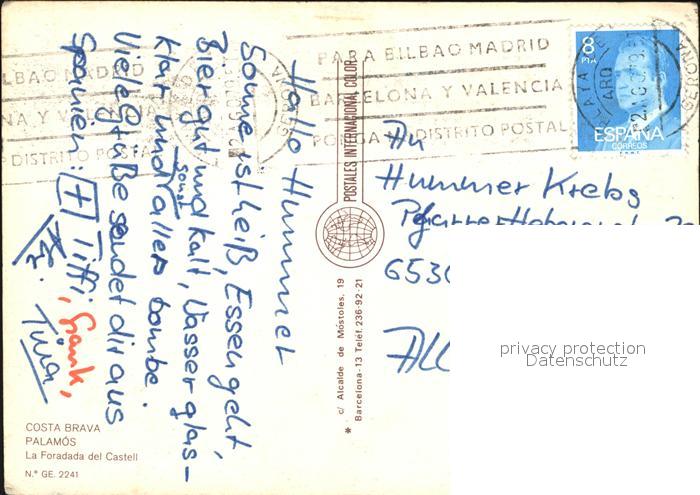 Hallo Hummel
Sonne ist heiß, Essen geht,
Bier gut und kalt, Wasser glas-
klar und sonst alles bombe.
Viele Grüße sendet dir aus
Spanien: Tiffi, Frank,
Tina
An
Hummer Krebs
6530
POSTALES INTERNACIONAL COLOR
c/ Alcalde de Móstoles, 19
Barcelona-13 Teléf. 236-92-21
COSTA BRAVA
PALAMÓS
La Foradada del Castell
N.º GE. 2241
PARA BILBAO MADRID
BARCELONA Y VALENCIA
DISTRITO POSTAL
LBAO MADRID
NA Y VALENCIA
DISTRITO POSTAL
8
PTA
ESPAÑA
CORREOS
privacy protection
Datenschutz